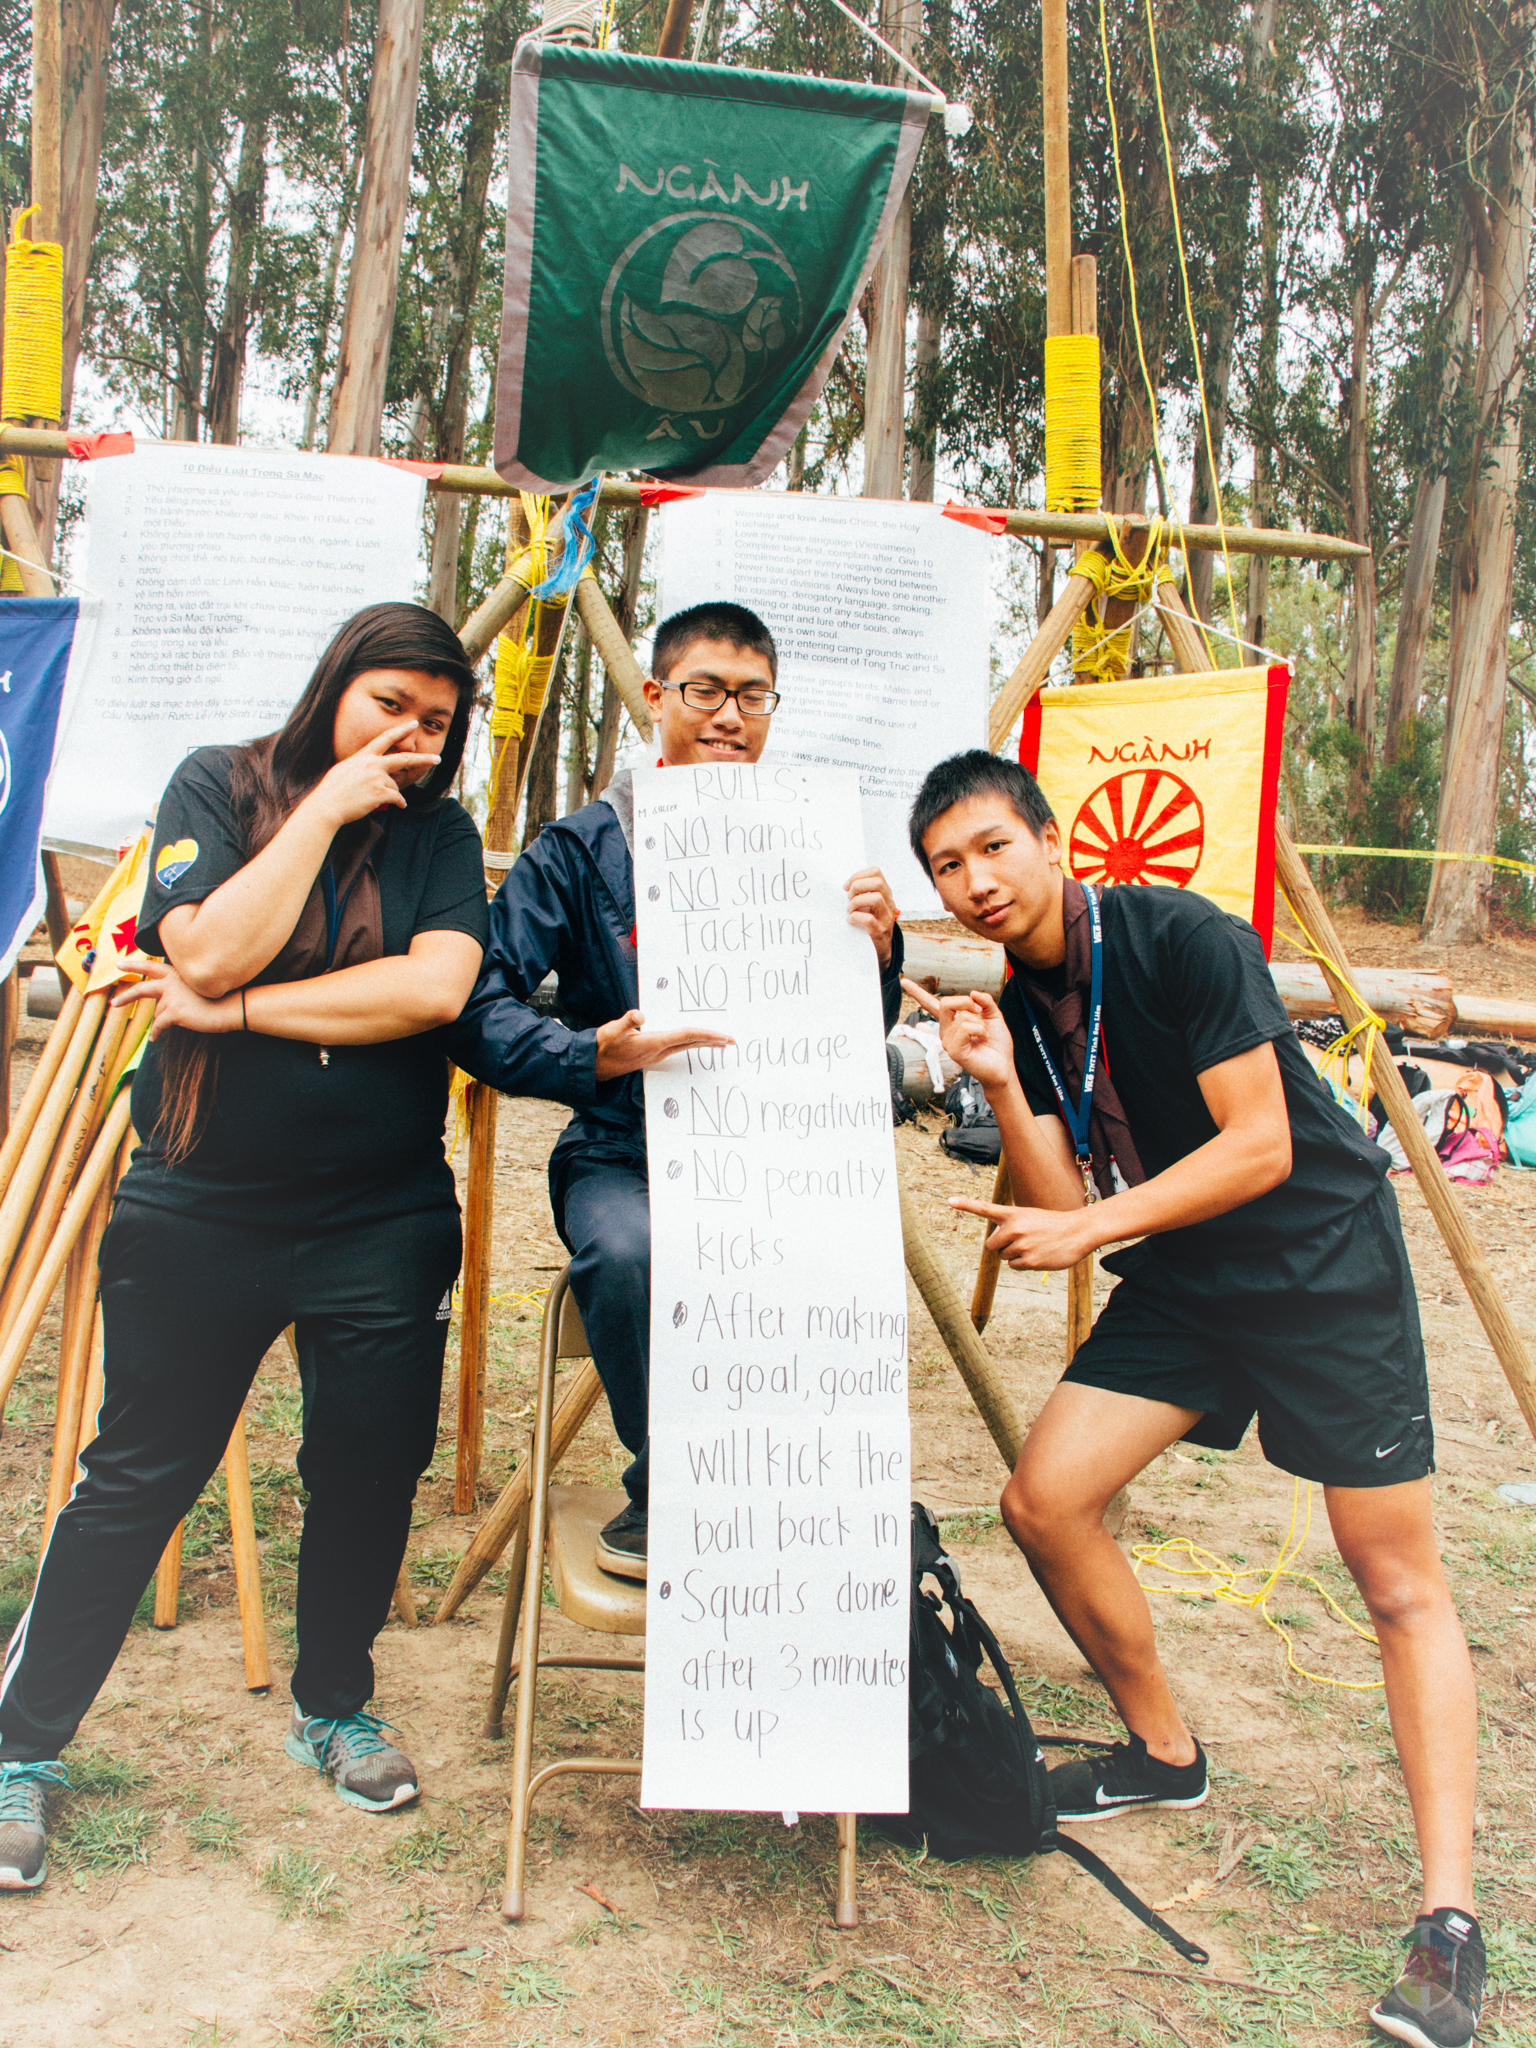 NGÀNH
ẤU
10 Điều Luật Trong Sa Mạc
1. Thờ phượng và yêu mến Chúa Giêsu Thánh Thể.
2. Yêu tiếng nước tôi.
3. Thi hành trước khiếu nại sau. Khen 10 Điều, Chê
một Điều
4. Không chia rẽ tình huynh đệ giữa đội, ngành. Luôn
yêu thương nhau.
5. Không chửi thề, nói tục, hút thuốc, cờ bạc, uống
rượu.
6. Không cám dỗ các Linh Hồn khác, luôn luôn bảo
vệ linh hồn mình.
7. Không ra, vào đất trại khi chưa có phép của
Trực và Sa Mạc Trưởng.
8. Không vào lều đội khác. Trai và gái không
chung trong xe và lều.
9. Không xả rác bừa bãi. Bảo vệ thiên nhiên
nên dùng thiết bị điện tử.
10. Kính trọng giờ đi ngủ.
10 điều luật sa mạc trên đây tóm về các
Cầu Nguyện / Rước Lễ / Hy Sinh / Làm
1. Worship and love Jesus Christ, the Holy
Eucharist.
2. Love my native language (Vietnamese)
3. Complete task first, complain after. Give 10
compliments per every negative comments.
4. Never tear apart the brotherly bond between
groups and divisions. Always love one another
5. No cussing, derogatory language, smoking,
gambling or abuse of any substance.
tempt and lure other souls, always
one's own soul.
or entering camp grounds without
and the consent of Tong Truc and Sa
other group's tents. Males and
may not be alone in the same tent or
any given time.
protect nature and no use of
the lights out/sleep time.
camp laws are summarized into the
Receiving
Apostolic
NGÀNH
RULES:
M. SOCCER
NO hands
NO slide
tackling
NO foul
language
NO negativity
NO penalty
kicks
After making
a goal, goalie
will kick the
ball back in
Squats done
after 3 minutes
is up
TNTT Vinh Sơn Liêm
adidas
NIKE